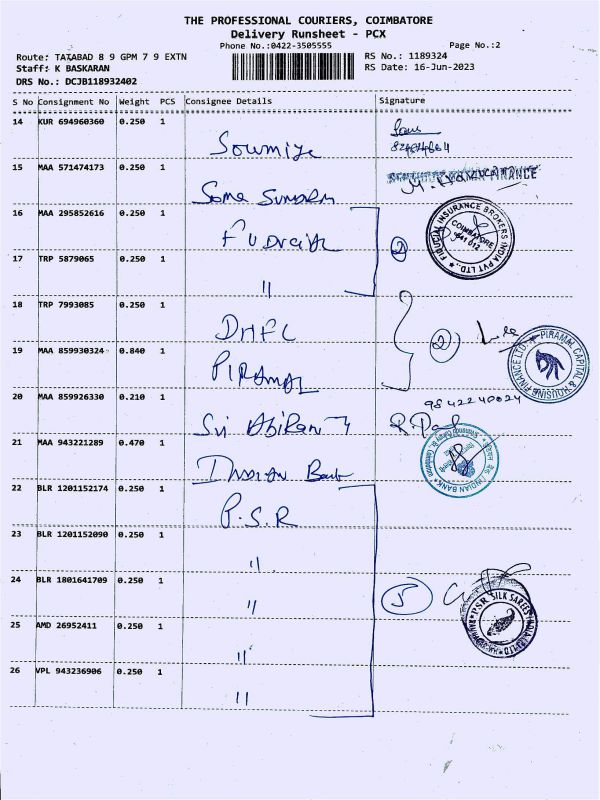 THE PROFESSIONAL COURIERS, COIMBATORE
Delivery Runsheet - PCX
Phone No.:0422-3505555
Page No.:2
Route: TATABAD 8 9 GPM 7 9 EXTN
RS No.: 1189324
Staff: K BASKARAN
RS Date: 16-Jun-2023
DRS No.: DCJB118932402
S No Consignment No Weight PCS Consignee Details Signature
14 KUR 694960360 0.250 1 Soumiya
15 MAA 571474173 0.250 1 Soma Sundrm
FINANCE
16 MAA 295852616 0.250 1
FIDUCIAL INSURANCE BROKERS INDIA PVT LTD., COIMBATORE 641 012
2
17 TRP 5879065 0.250 1 "
18 TRP 7993085 0.250 1 DHFL
2
PIRAMAL CAPITAL & HOUSING FINANCE LTD.
19 MAA 859930324 0.840 1 PIRAMAL
20 MAA 859926330 0.210 1 Sri Abirami
9842240024
21 MAA 943221289 0.470 1 Indian Bank
INDIAN BANK
22 BLR 1201152174 0.250 1 P.S.R
23 BLR 1201152090 0.250 1 "
24 BLR 1801641709 0.250 1 "
5
P.S.R. SILK SAREES INDIA (P) LTD
25 AMD 26952411 0.250 1 "
26 VPL 943236906 0.250 1 "